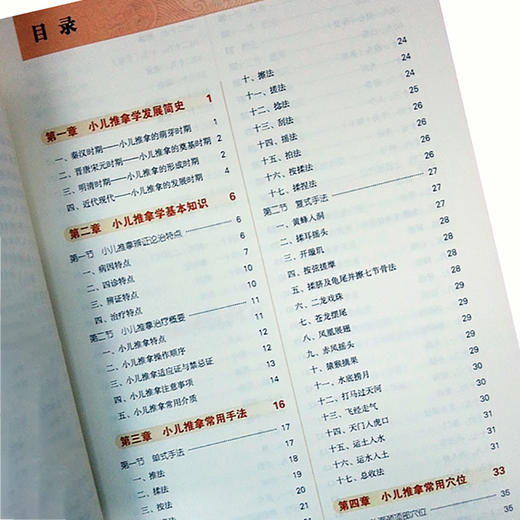 目录
第一章 小儿推拿学发展简史 1
一、秦汉时期——小儿推拿的萌芽时期 1
二、晋唐宋元时期——小儿推拿的奠基时期 2
三、明清时期——小儿推拿的形成时期 2
四、近代现代——小儿推拿的发展时期 4
第二章 小儿推拿学基本知识 6
第一节 小儿推拿辨证论治特点 6
一、病因特点 7
二、四诊特点 10
三、辨证特点 10
四、治疗特点 11
第二节 小儿推拿治疗概要 11
一、小儿推拿特点 11
二、小儿推拿操作顺序 12
三、小儿推拿适应证与禁忌证 12
四、小儿推拿注意事项 13
五、小儿推拿常用介质 14
第三章 小儿推拿常用手法 16
第一节 单式手法 17
一、推法 17
二、揉法
三、按法
十、擦法 24
十一、搓法 24
十二、捻法 24
十三、刮法 25
十四、摇法
十五、拍法
十六、按揉法 26
十七、揉捏法 26
第二节 复式手法 27
一、黄蜂入洞 27
二、揉耳摇头 27
三、开璇玑 28
四、按弦搓摩 28
五、揉脐及龟尾并擦七节骨法 28
六、二龙戏珠
七、苍龙摆尾 29
八、凤凰展翅 29
九、赤凤摇头 29
十、猿猴摘果
十一、水底捞月
十二、打马过天河
十三、飞经走气
十四、天门入虎口
十五、运土入水
十六、运水入土
十七、总收法
第四章 小儿推拿常用穴位 33